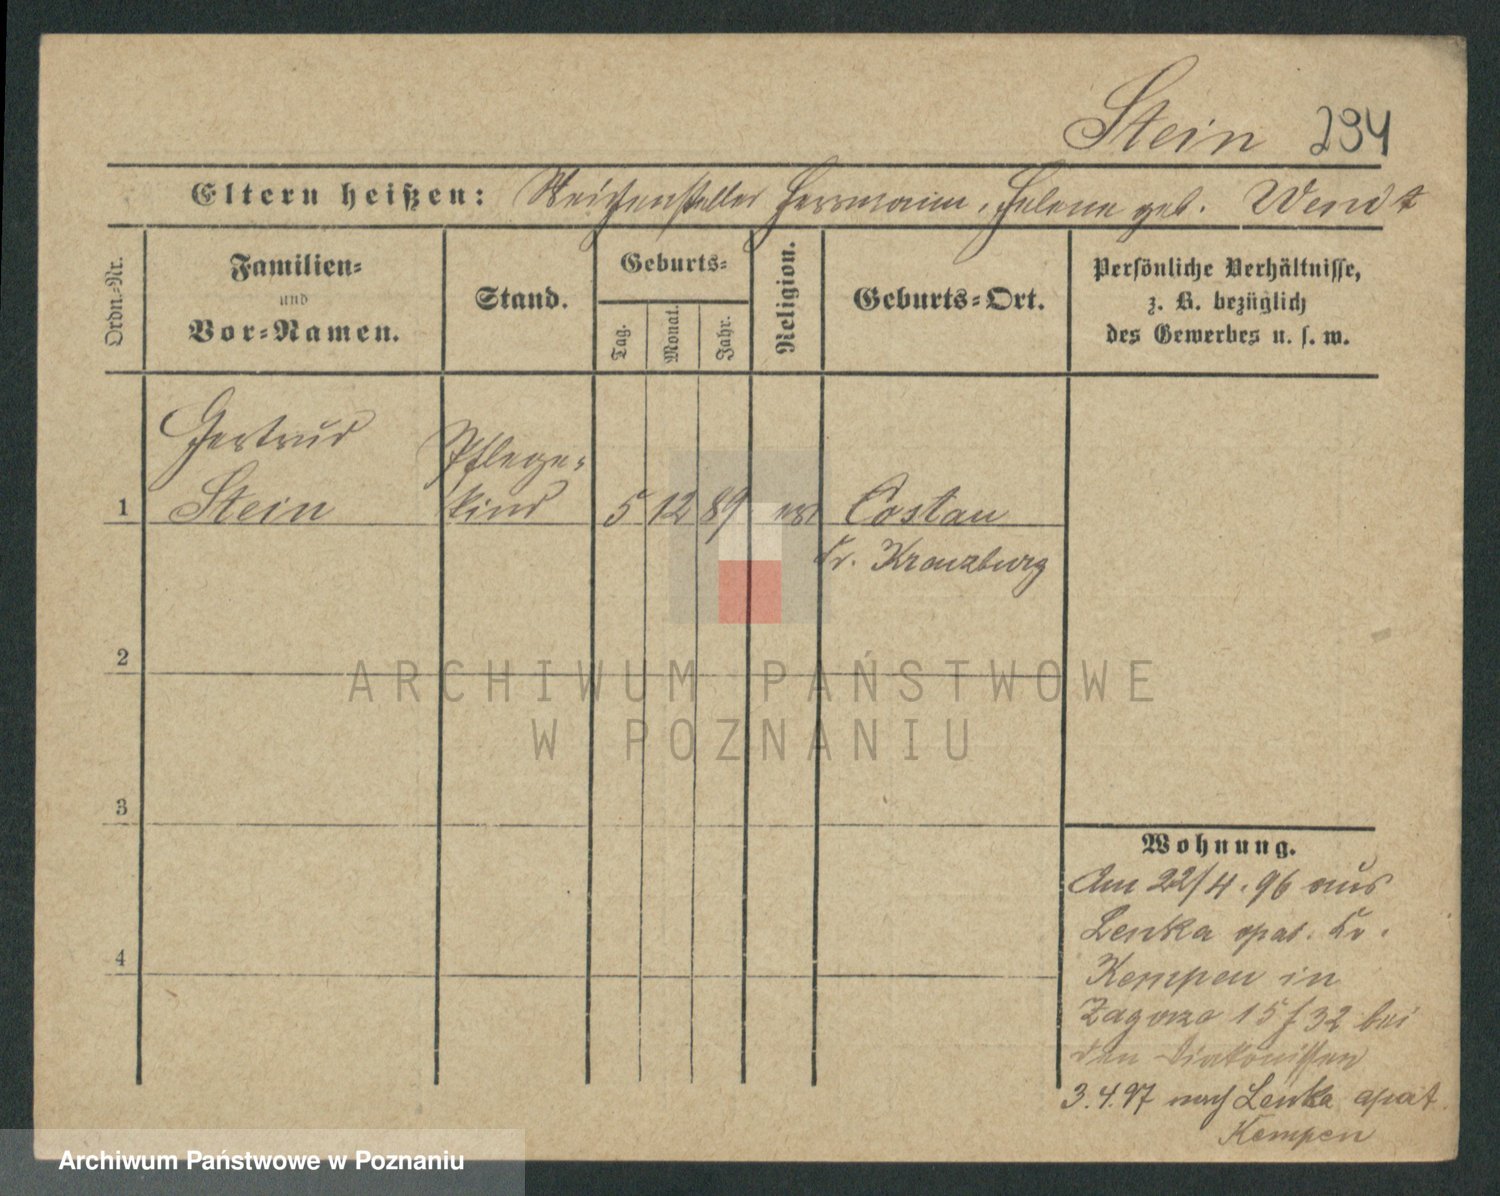 Stein 294
Eltern heißen: Weichensteller Herrmann, Helene geb. Wendt
Ordn.-Nr.
Familien-
und
Vor-Namen.
Stand.
Geburts-
Tag.
Monat.
Jahr.
Religion.
Geburts-Ort.
Persönliche Verhältnisse,
z. B. bezüglich
des Gewerbes u. s. w.
Gertrud Pflege-
1 Stein kind 5 12 89 ev Costau
Kr. Kreuzburg
2
3
4
Wohnung.
Am 22/4. 96 aus
Lenka opat. Kr.
Kempen in
Zagorze 15 f 32 bei
den Diakonissen
3.4.97 nach Lenka opat
Kempen
ARCHIWUM PAŃSTWOWE
W POZNANIU
Archiwum Państwowe w Poznaniu